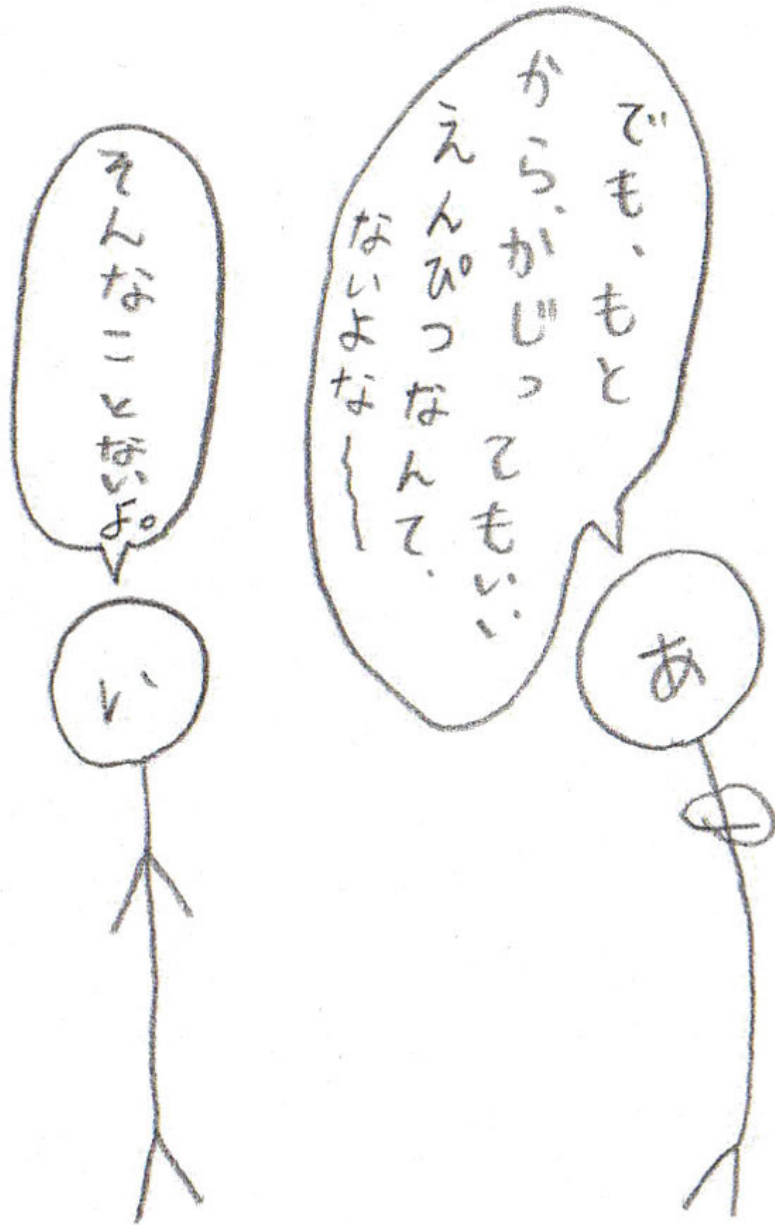 でも、もと
から、かじっ
てもいい
えんぴつなんて、
ないよな〜〜
あ
そんなことないよ。
い